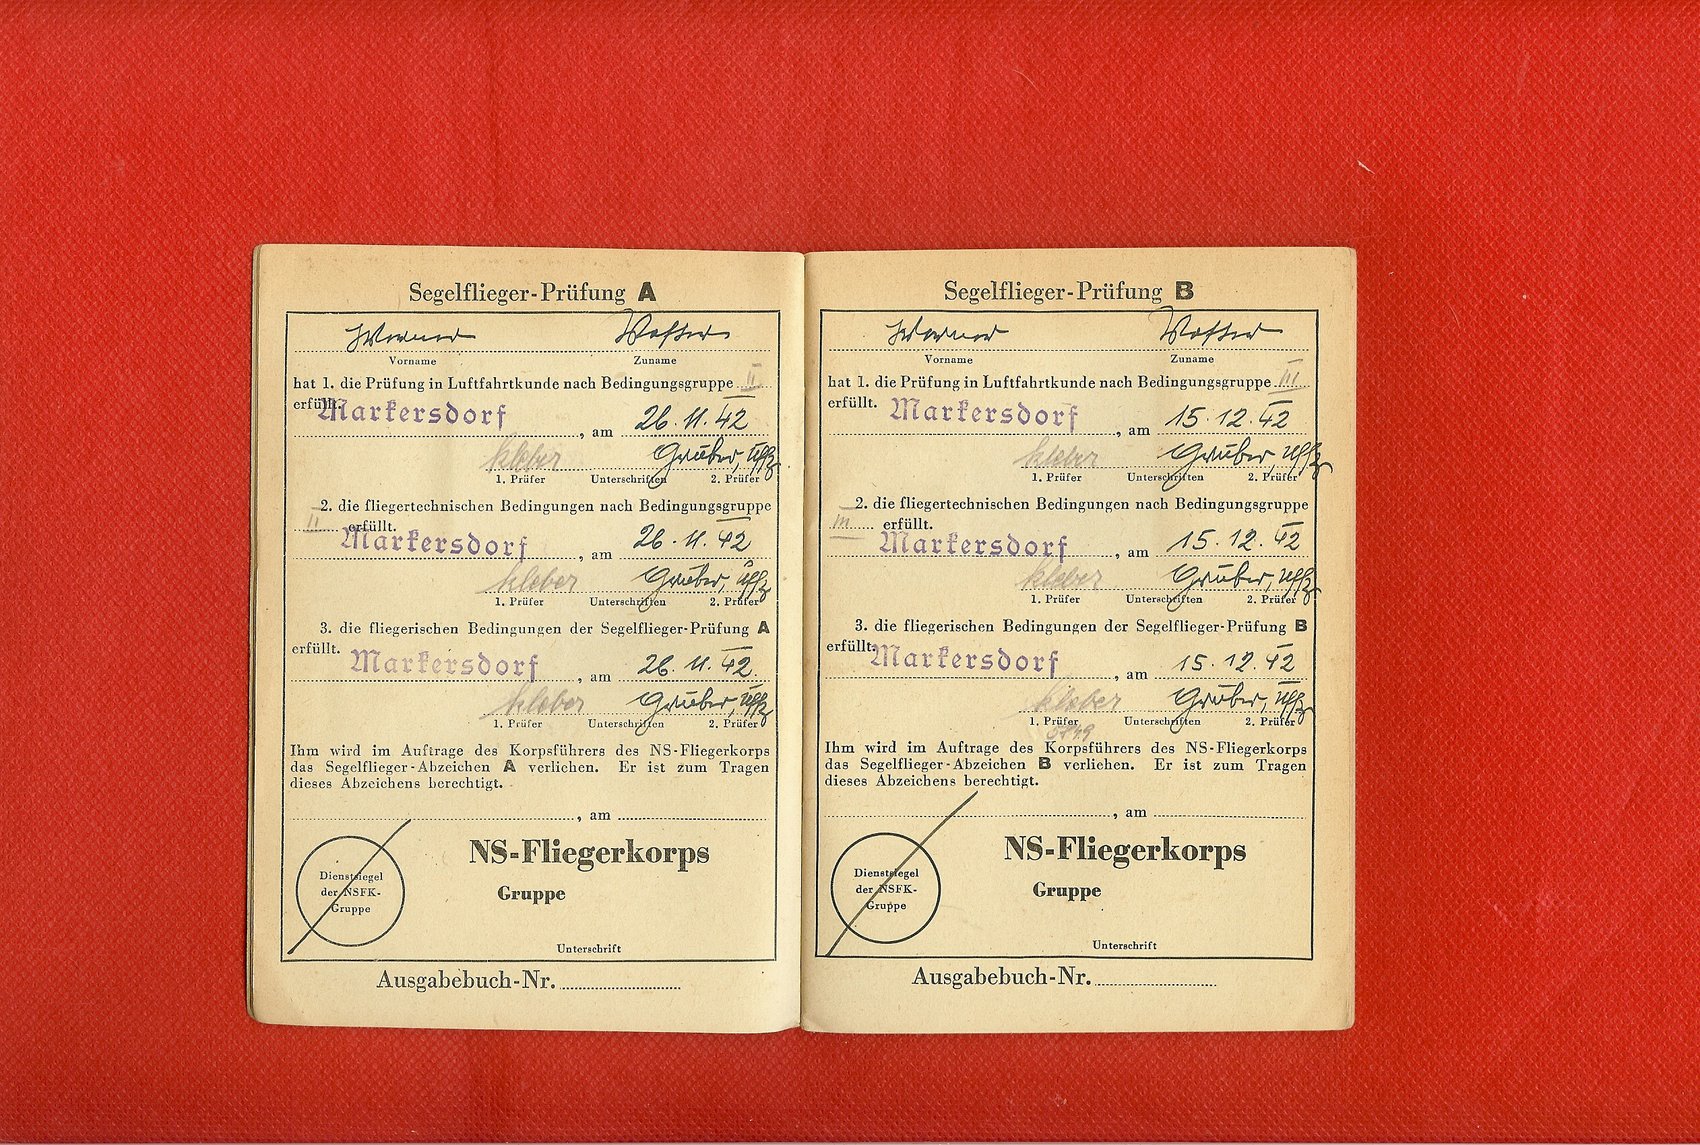 Segelflieger-Prüfung A
Werner
Vorname Zuname
hat 1. die Prüfung in Luftfahrtkunde nach Bedingungsgruppe II
erfüllt.
Markersdorf, am 26.11.42
Kleber Gruber, Uffz
1. Prüfer Unterschriften 2. Prüfer
2. die fliegertechnischen Bedingungen nach Bedingungsgruppe
II erfüllt.
Markersdorf, am 26.11.42
Kleber Gruber, Uffz
1. Prüfer Unterschriften 2. Prüfer
3. die fliegerischen Bedingungen der Segelflieger-Prüfung A
erfüllt.
Markersdorf, am 26.11.42
Kleber Gruber, Uffz
1. Prüfer Unterschriften 2. Prüfer
Ihm wird im Auftrage des Korpsführers des NS-Fliegerkorps
das Segelflieger-Abzeichen A verliehen. Er ist zum Tragen
dieses Abzeichens berechtigt.
, am
Dienstsiegel
der NSFK-
Gruppe
NS-Fliegerkorps
Gruppe
Unterschrift
Ausgabebuch-Nr.
Segelflieger-Prüfung B
Werner
Vorname Zuname
hat 1. die Prüfung in Luftfahrtkunde nach Bedingungsgruppe III
erfüllt.
Markersdorf, am 15.12.42
Kleber Gruber, Uffz
1. Prüfer Unterschriften 2. Prüfer
2. die fliegertechnischen Bedingungen nach Bedingungsgruppe
III erfüllt.
Markersdorf, am 15.12.42
Kleber Gruber, Uffz
1. Prüfer Unterschriften 2. Prüfer
3. die fliegerischen Bedingungen der Segelflieger-Prüfung B
erfüllt.
Markersdorf, am 15.12.42
Kleber Gruber, Uffz
1. Prüfer Unterschriften 2. Prüfer
Ihm wird im Auftrage des Korpsführers des NS-Fliegerkorps
das Segelflieger-Abzeichen B verliehen. Er ist zum Tragen
dieses Abzeichens berechtigt.
, am
Dienstsiegel
der NSFK-
Gruppe
NS-Fliegerkorps
Gruppe
Unterschrift
Ausgabebuch-Nr.